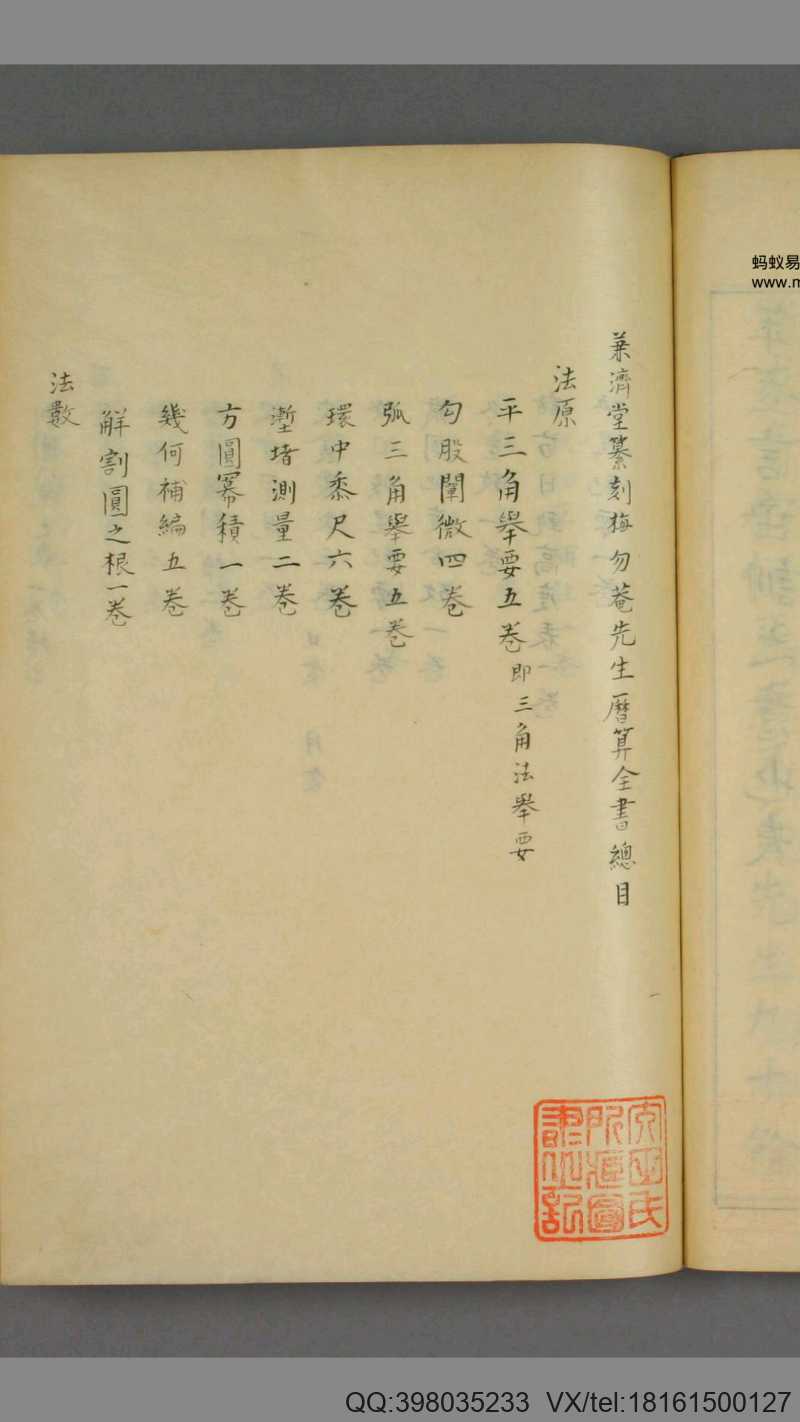 蒹濟堂纂刻梅勿菴先生曆算全書總目
法原
平三角舉要五卷即三角法舉要
勾股闡微四卷
弧三角舉要五卷
環中黍尺六卷
塹堵測量二卷
方圓冪積一卷
幾何補編五卷
解割圓之根一卷
法數
蚂蚁易
www.m
QQ:398035233 VX/tel:18161500127